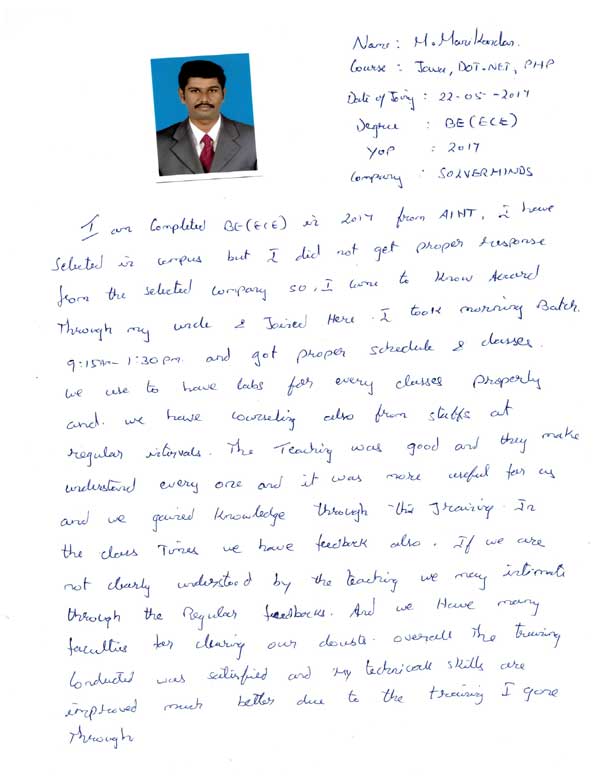 Name : M. Manikandan.
Course : Java, DOT.NET, PHP
Date of Joining : 22-05-2017
Degree : BE(ECE)
YOP : 2017
Company : SOLVERMINDS
I am Completed BE(ECE) in 2017 from AIHT, I have
Selected in campus but I did not get proper response
from the selected company so, I came to know Accord
Through my uncle & Joined Here. I took morning Batch.
9:15AM-1:30pm. and got proper schedule & classes.
we use to have labs for every classes properly
and. we have counseling also from staffs at
regular intervals. The Teaching was good and they make
understand every one and it was more useful for us
and we gained knowledge through this Training. In
the class Times we have feedback also. If we are
not clearly understood by the teaching we may intimate
through the Regular feedbacks. And we Have many
faculties for clearing our doubts. overall The training
Conducted was satisfied and my technical skills are
improved much better due to the training I gone
Through